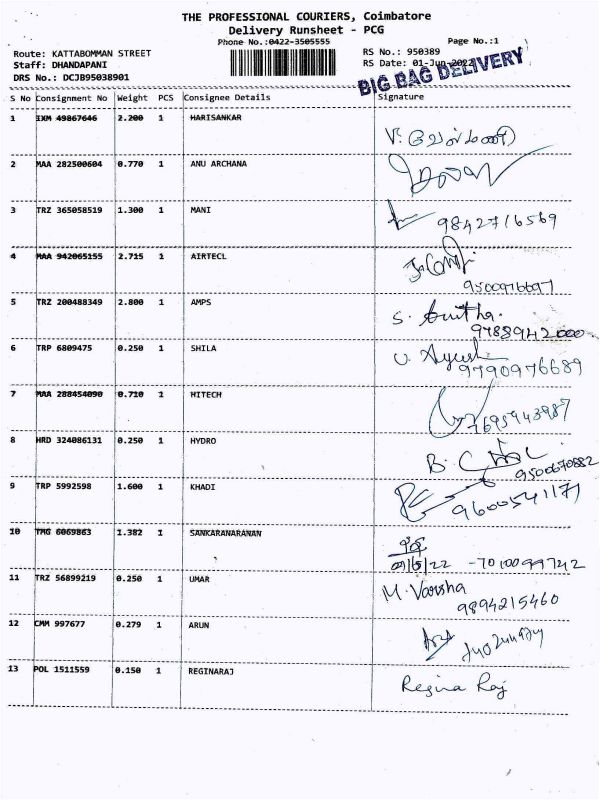 THE PROFESSIONAL COURIERS, Coimbatore
Delivery Runsheet - PCG
Phone No.:0422-3505555 Page No.:1
Route: KATTABOMMAN STREET RS No.: 950389
Staff: DHANDAPANI RS Date: 01-Jun-2022
DRS No.: DCJB95038901
BIG BAG DELIVERY
S No Consignment No Weight PCS Consignee Details Signature
1 IXM 49867646 2.200 1 HARISANKAR
2 MAA 282500604 0.770 1 ANU ARCHANA
3 TRZ 365058519 1.300 1 MANI
9842716569
4 MAA 942065155 2.715 1 AIRTECL
9500976697
5 TRZ 200488349 2.800 1 AMPS S. Anitha.
9788942000
6 TRP 6809475 0.250 1 SHILA U. Ayush
9790976689
7 MAA 288454090 0.710 1 HITECH
7695943987
8 HRD 324086131 0.250 1 HYDRO B.
9500670882
9 TRP 5992598 1.600 1 KHADI
9600541171
10 TMG 6069863 1.382 1 SANKARANARANAN
7010099742
11 TRZ 56899219 0.250 1 UMAR M. Varsha
9894215460
12 CMM 997677 0.279 1 ARUN
13 POL 1511559 0.150 1 REGINARAJ Regina Raj